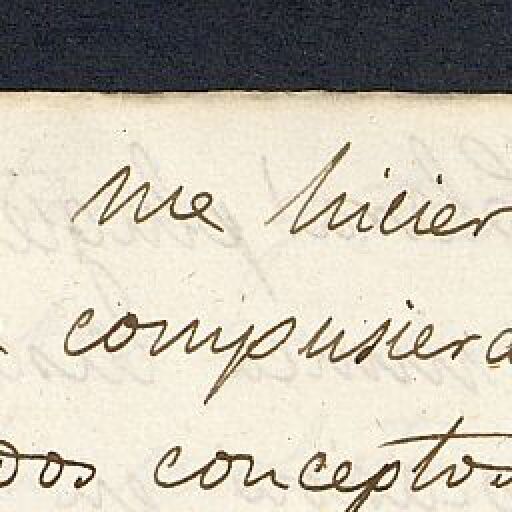 me hicier
compusiera
dos conceptos